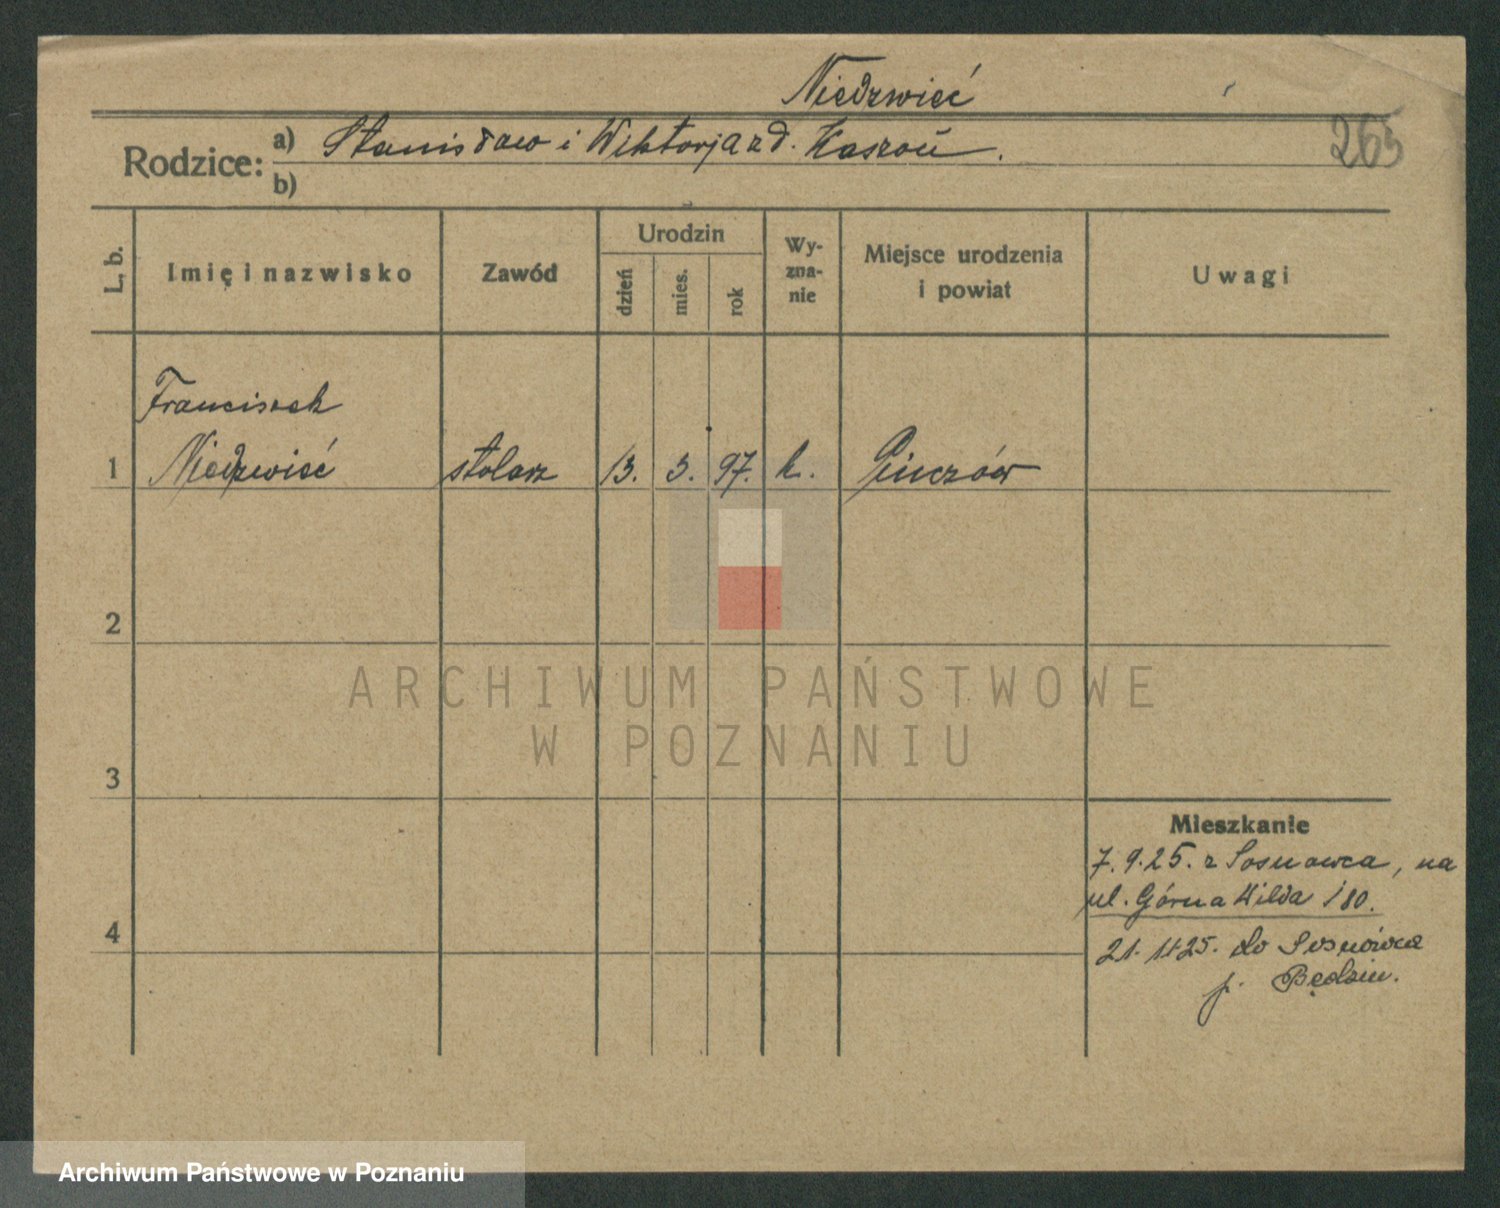 Niedzwieć
265
Rodzice: a) Stanisław i Wiktorja z d. Kaszoń.
b)
L. b. Imię i nazwisko Zawód Urodzin dzień mies. rok Wyznanie Miejsce urodzenia i powiat Uwagi
Franciszek
1 Niedzwieć stolarz 13. 3. 97. k. Pinczów
2
3
Mieszkanie
7.9.25. z Sosnowca, na
ul. Górna Wilda 180.
4
21. 1125. do Sosnówca
p. Będzin.
ARCHIWUM PAŃSTWOWE
W POZNANIU
Archiwum Państwowe w Poznaniu